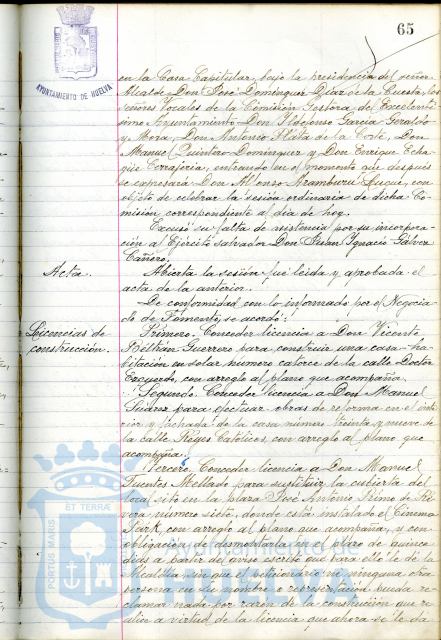 65
AYUNTAMIENTO DE HUELVA
en la Casa Capitular, bajo la presidencia del señor
Alcalde Don José Domínguez Díaz de la Cuesta, los
señores Vocales de la Comisión Gestora del Excelentí
simo Ayuntamiento Don Ildefonso García Geraldo
y Mora, Don Antonio de la Corte, Don
Manuel Quintero Domínguez y Don Enrique Echa
güe entrando en el momento que después
se expresará Don Alfonso Aramburu Luque, con
objeto de celebrar la sesión ordinaria de dicha Co
misión correspondiente al día de hoy.
Excusó su falta de asistencia por su incorpora
ción al Ejército salvador Don Juan Ignacio Gálvez
Cañero.
Acta.
Abierta la sesión fué leída y aprobada el
acta de la anterior.
De conformidad con lo informado por el Negocia
do de Fomento, se acordó:
Licencias de
construcción.
Primero. Conceder licencia a Don Vicente
Beltrán Guerrero para construir una casa-ha
bitación en solar número catorce de la calle Doctor
con arreglo al plano que acompaña.
Segundo. Conceder licencia a Don Manuel
Suárez para ejecutar obras de reforma en el inte
rior y fachada de la casa número treinta y nueve de
la calle Reyes Católicos, con arreglo al plano que
acompaña.
Tercero. Conceder licencia a Don Manuel
Fuentes Mellado para sustituir la cubierta del
local sito en la plaza José Antonio Primo de Ri
vera número siete, donde está instalado el Cinema
Park, con arreglo al plano que acompaña, y con
obligación de desmontarla en el plazo de quince
días a partir del aviso escrito que para ello le dé la
Alcaldía sin que el peticionario ni ninguna otra
persona en su nombre o representación pueda re
clamar nada por razón de la construcción que re
alice a virtud de la licencia que ahora se le da
PORTUS MARIS ET TERRAE
Ayuntamiento de